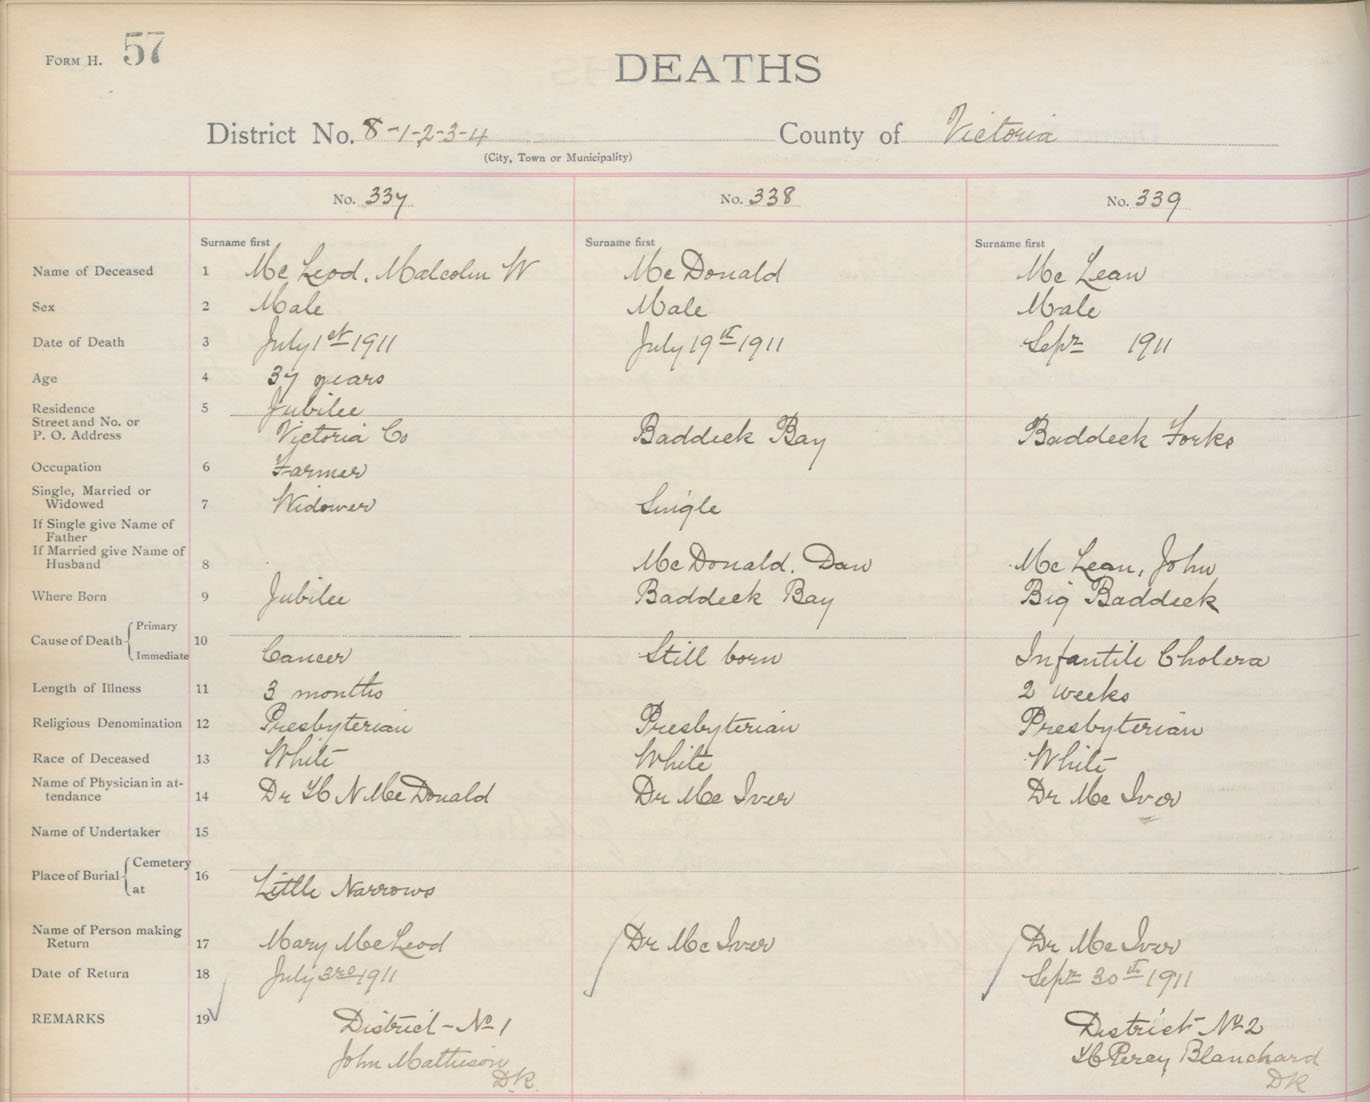 Form H. 57
DEATHS
District No. 8-1-2-3-4 County of Victoria
(City, Town or Municipality)
No. 337 No. 338 No. 339
Surname first Surname first Surname first
Name of Deceased 1 McLeod, Malcolm W McDonald McLean
Sex 2 Male Male Male
Date of Death 3 July 1st 1911 July 19th 1911 Sepr 1911
Age 4 37 years
Residence 5 Jubilee
Street and No. or
P. O. Address Victoria Co Baddeck Bay Baddeck Forks
Occupation 6 Farmer
Single, Married or
Widowed 7 Widower Single
If Single give Name of
Father
If Married give Name of
Husband 8 McDonald, Dan McLean, John
Where Born 9 Jubilee Baddeck Bay Big Baddeck
Cause of Death Primary 10
Immediate Cancer Still born Infantile Cholera
Length of Illness 11 3 months 2 weeks
Religious Denomination 12 Presbyterian Presbyterian Presbyterian
Race of Deceased 13 White White White
Name of Physician in at-
tendance 14 Dr H N McDonald Dr McIver Dr McIver
Name of Undertaker 15
Place of Burial Cemetery 16
at Little Narrows
Name of Person making
Return 17 Mary McLeod Dr McIver Dr McIver
Date of Return 18 July 3rd 1911 Sepr 30th 1911
REMARKS 19 District - No 1 District No 2
John Mathieson H Percy Blanchard
DR DR